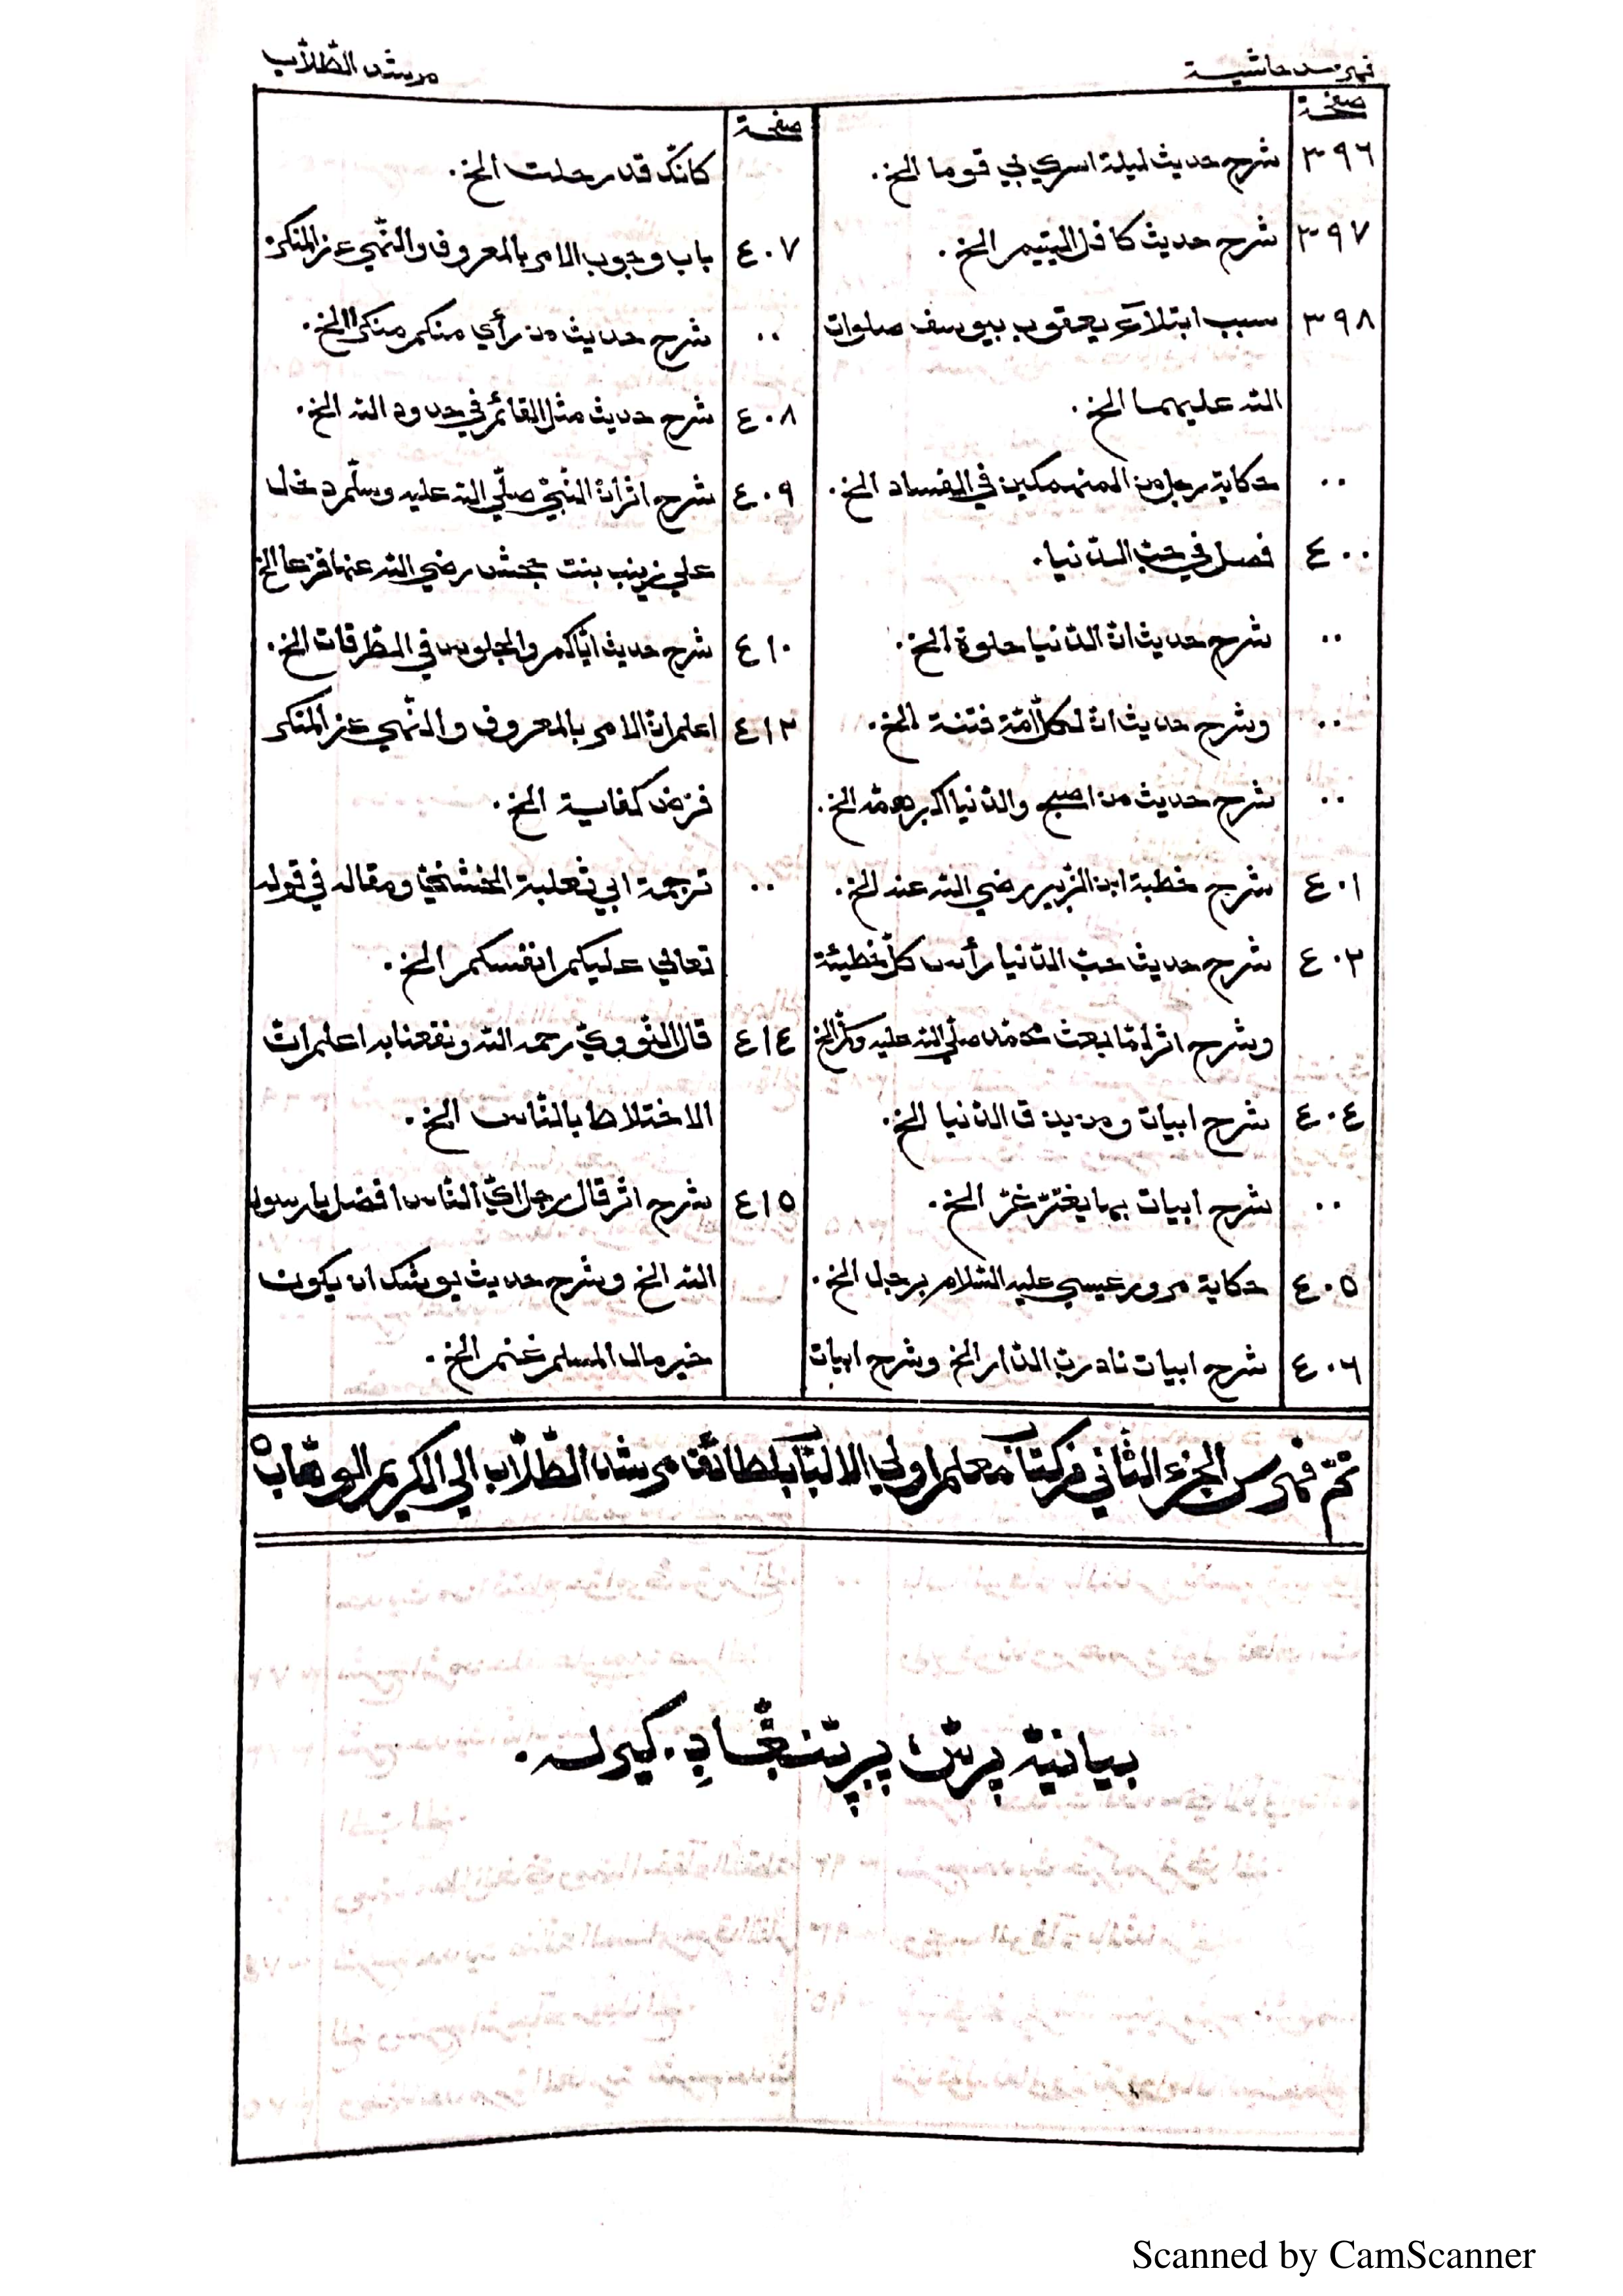 فهرس حاشية
مرشد الطّلّاب
صفحة
٣٩٦ شرح حديث ليلة اسري بي قوما الخ.
٣٩٧ شرح حديث كافل اليتيم الخ.
٣٩٨ سبب ابتلآء يعقوب بيوسف صلوات
الله عليهما الخ.
.. حكاية رجل من المنهمكين في الفساد الخ.
٤٠٠ فصل في حبّ الدّنيا.
.. شرح حديث انّ الدّنيا حلوة الخ.
.. وشرح حديث انّ لكلّ امّة فتنة الخ.
.. شرح حديث من اصبح والدّنيا اكبر همّه الخ.
٤٠١ شرح خطبة ابن الزّبير رضي الله عنه الخ.
٤٠٢ شرح حديث حبّ الدّنيا رأس كلّ خطيئة
وشرح اثر لمّا بعث محمّد صلّي الله عليه وسلّم الخ
٤٠٤ شرح ابيات ومن يذق الدّنيا الخ.
.. شرح ابيات بما يغترّ غرّ الخ.
٤٠٥ حكاية مرور عيسي عليه السّلام برجل الخ.
٤٠٦ شرح ابيات نادرت الدّار الخ وشرح ابيات
صفحة
كانّك قد رحلت الخ.
٤٠٧ باب وجوب الامر بالمعروف والنّهي عن المنكر
.. شرح حديث من رأي منكم منكرا الخ.
٤٠٨ شرح حديث مثل القائم في حدود الله الخ.
٤٠٩ شرح اثر انّ النّبيّ صلّي الله عليه وسلّم دخل
علي زينب بنت جحش رضي الله عنها فزعا الخ
٤١٠ شرح حديث ايّاكم والجلوس في الطّرقات الخ.
٤١٢ اعلم انّ الامر بالمعروف والنّهي عن المنكر
فرض كفاية الخ.
.. ترجمة ابي ثعلبة الخشنيّ ومقاله في قوله
تعالي عليكم انفسكم الخ.
٤١٤ قال النّوويّ رحمه الله ونفعنا به اعلم انّ
الاختلاط بالنّاس الخ.
٤١٥ شرح اثر قال رجل ايّ النّاس افضل يا رسول
الله الخ وشرح حديث يوشك ان يكون
خير مال المسلم غنم الخ.
تمّ فهرس الجزء الثّاني من كتاب معلم اولي الالباب لطائف مرشد الطّلّاب الي الكريم الوهّاب
بيانيّة پرپّننگادِ. كيرلہ.
Scanned by CamScanner